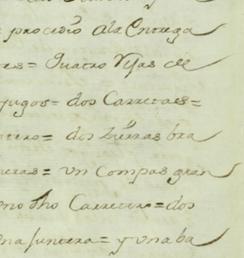 procedio ala Entrega
es = Quatro Vijas de
jugos = dos Carretas =
tero = dos Sierras bra
eras = un Compas gran
no dho Carretero = dos
na Juntera = y una ba